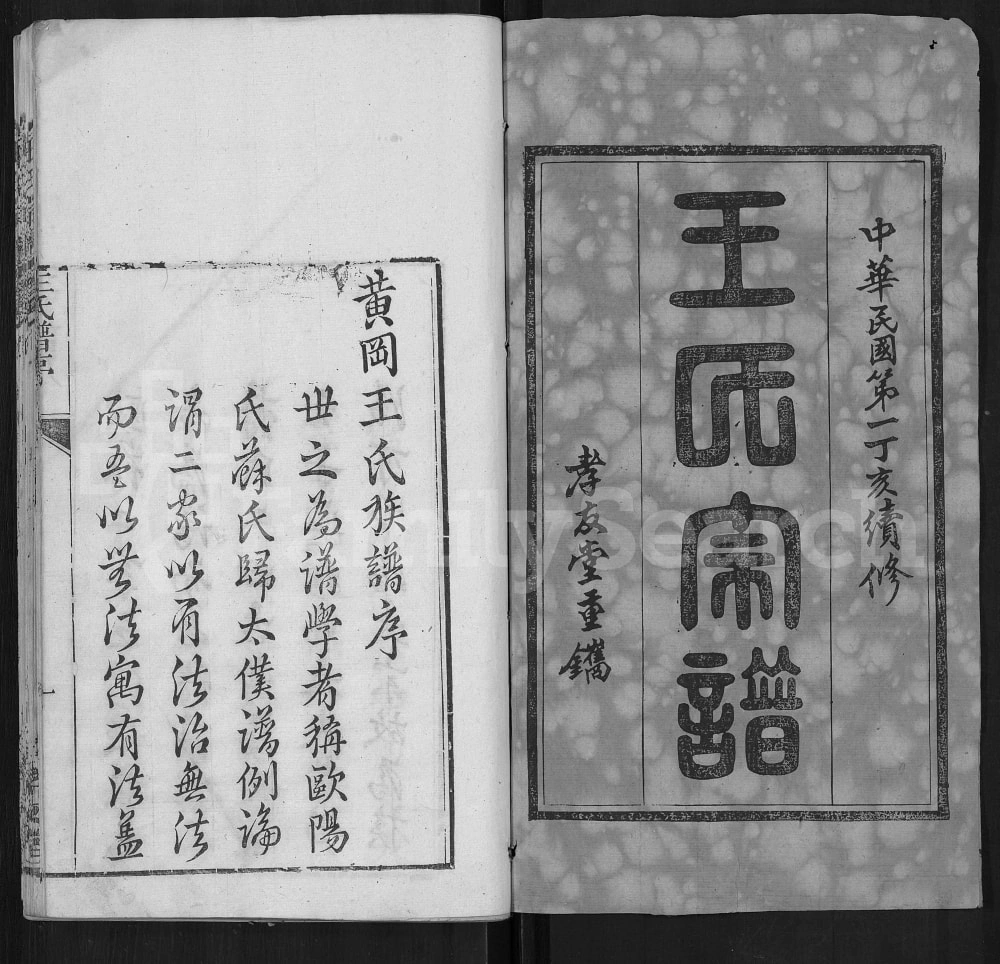 中華民國第一丁亥續修
王氏宗譜
孝友堂重鐫
黃岡王氏族譜序
世之為譜學者稱歐陽
氏蘇氏歸太僕譜例論
謂二家以有法治無法
而吾以無法寓有法蓋
王氏譜序
一